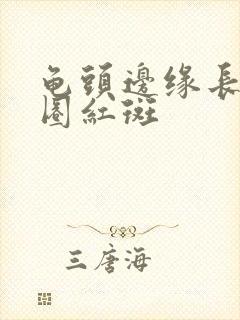 龟頭邊缘長
圈紅斑
三唐海